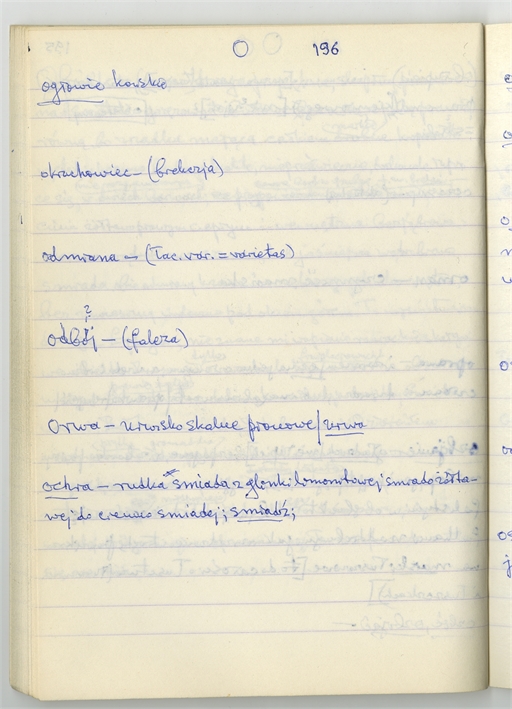 O 196
ogrowie końskie
okruchowiec – (brekczja)
odmiana – (łac. var. = varietas)
?
odbój – (faleza)
Orwa – urwisko skalne pionowe / urwa
ochra – rudka śniada z glonki limonitowej śniado żółta-
wej do czerwono śniadej; śniadź;